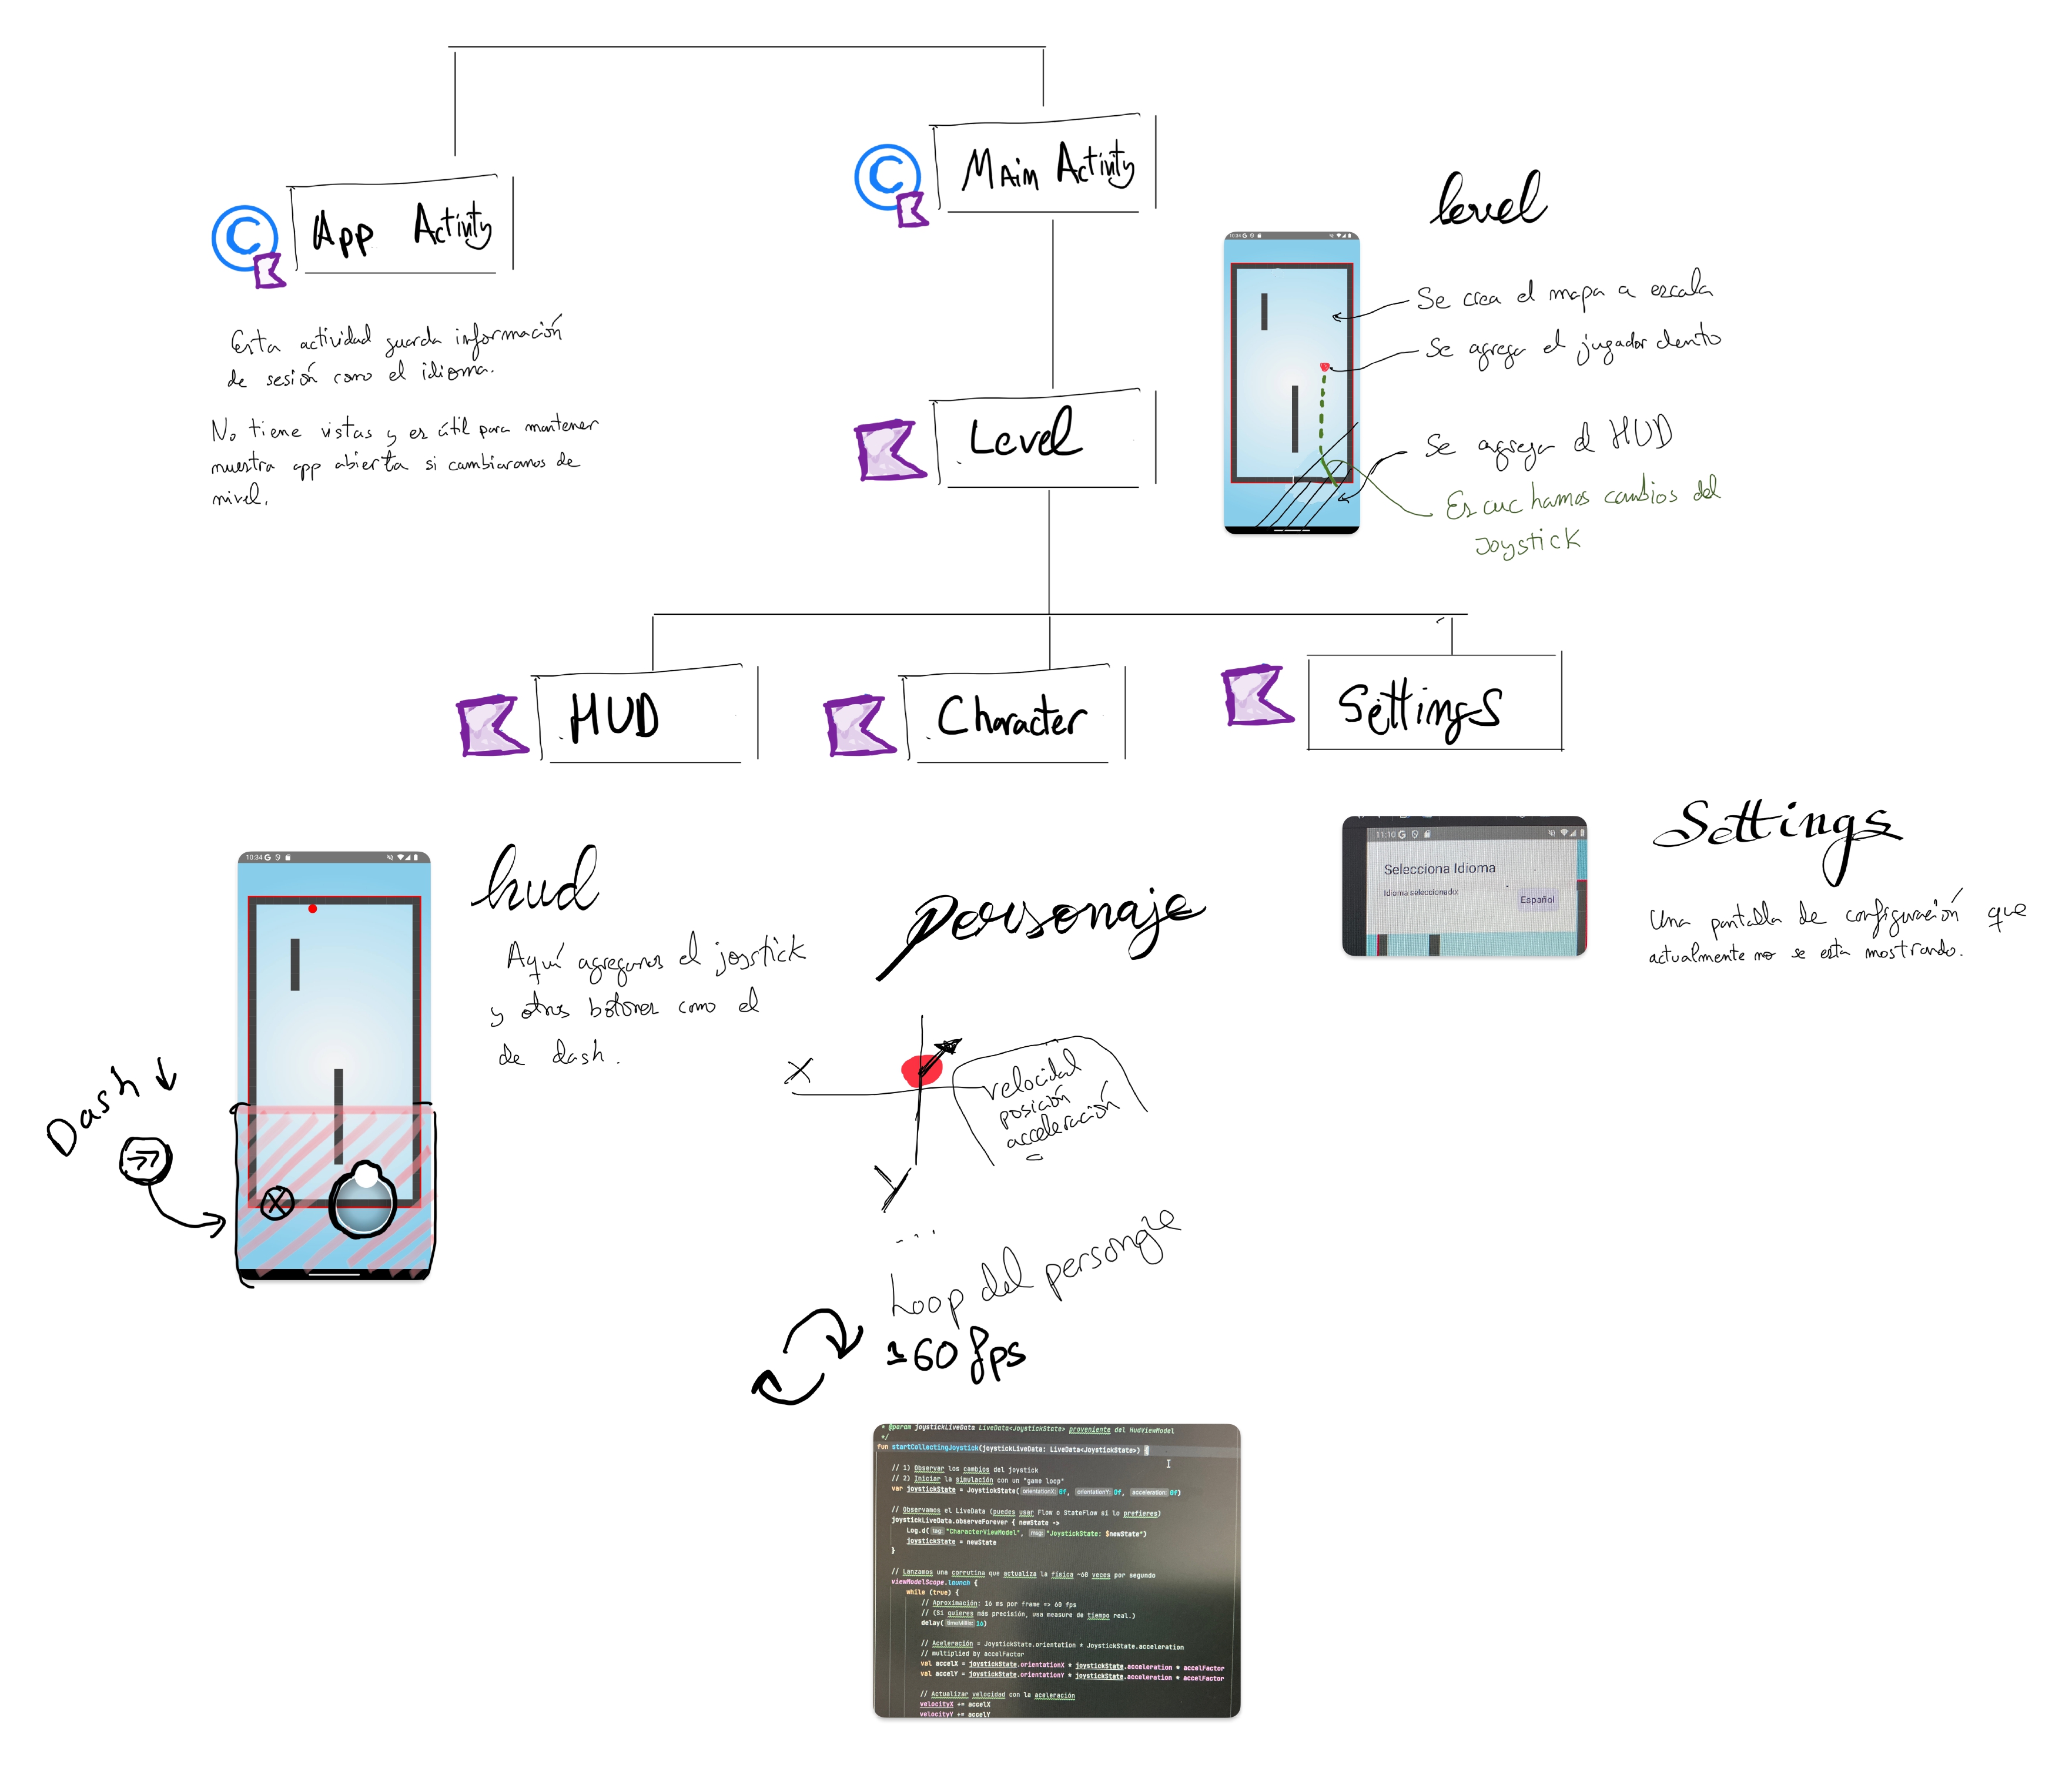 Main Activity
App Activity
Esta actividad guarda información
de sesión como el idioma.
No tiene vistas y es útil para mantener
nuestra app abierta si cambiaramos de
nivel.
level
10:34 G
Se crea el mapa a escala
Se agrega el jugador dento
Se agrega el HUD
Escuchamos cambios del
Joystick
Level
HUD
Character
Settings
10:34 G
hud
Aquí agregamos el joystick
y otros botones como el
de dash.
Dash ↓
X
personaje
X
Y
velocidad
posición
acceleración
...
Loop del personaje
≈60 fps
11:10 G
Selecciona Idioma
Idioma seleccionado:
Español
Settings
Una pantalla de configuración que
actualmente no se esta mostrando.
* @param joystickLiveData LiveData<JoystickState> proveniente del HudViewModel
*/
fun startCollectingJoystick(joystickLiveData: LiveData<JoystickState>) {
// 1) Observar los cambios del joystick
// 2) Iniciar la simulación con un "game loop"
var joystickState = JoystickState( orientationX: 0f, orientationY: 0f, acceleration: 0f)
// Observamos el LiveData (puedes usar Flow o StateFlow si lo prefieres)
joystickLiveData.observeForever { newState ->
Log.d( tag: "CharacterViewModel", msg: "JoystickState: $newState")
joystickState = newState
}
// Lanzamos una corrutina que actualiza la física ~60 veces por segundo
viewModelScope.launch {
while (true) {
// Aproximación: 16 ms por frame => 60 fps
// (Si quieres más precisión, usa measure de tiempo real.)
delay( timeMillis: 16)
// Aceleración = JoystickState.orientation * JoystickState.acceleration
// multiplied by accelFactor
val accelX = joystickState.orientationX * joystickState.acceleration * accelFactor
val accelY = joystickState.orientationY * joystickState.acceleration * accelFactor
// Actualizar velocidad con la aceleración
velocityX += accelX
velocityY += accelY